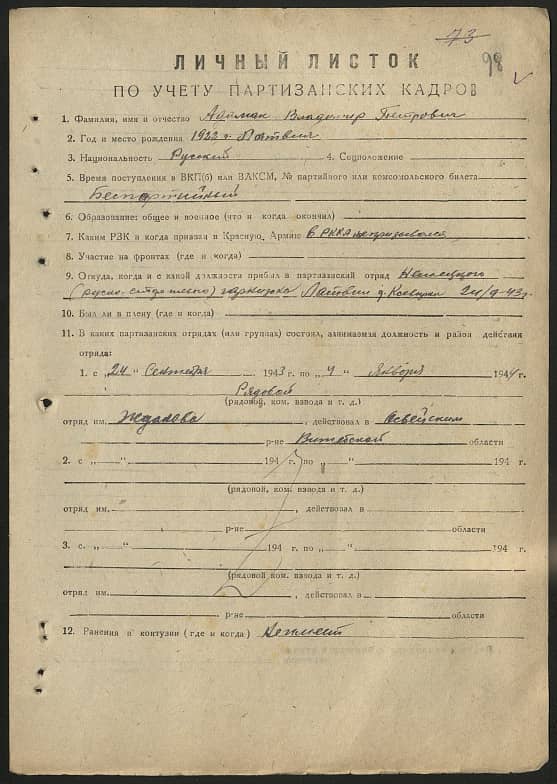 73
98
ЛИЧНЫЙ ЛИСТОК
ПО УЧЕТУ ПАРТИЗАНСКИХ КАДРОВ
1. Фамилия, имя и отчество Владимир Петрович
2. Год и место рождения 1922 г. Латвия
3. Национальность Русский 4. Соцположение
5. Время поступления в ВКП(б) или ВЛКСМ, № партийного или комсомольского билета
Беспартийный
6. Образование: общее и военное (что и когда окончил)
7. Каким РЗК и когда призван в Красную Армию в РККА не призывался
8. Участие на фронтах (где и когда)
9. Откуда, когда и с какой должности прибыл в партизанский отряд Немецкого
гарнизона Латвии д. 24/9-43 г.
10. Был ли в плену (где и когда)
11. В каких партизанских отрядах (или группах) состоял, занимаемая должность и район действия
отряда:
1. с „24" Сентября 1943 г. по „4" Января 1944 г.
Рядовой
(рядовой, ком. взвода и т. д.)
отряд им. Жданова, действовал в Освейском
р-не Витебской области
2. с „ " 194 г. по „ " 194 г.
(рядовой, ком. взвода и т. д.)
отряд им. , действовал в
р-не области
3. с „ " 194 г. по „ " 194 г.
(рядовой, ком. взвода и т. д.)
отряд им. , действовал в
р-не области
12. Ранения и контузии (где и когда) не имеет